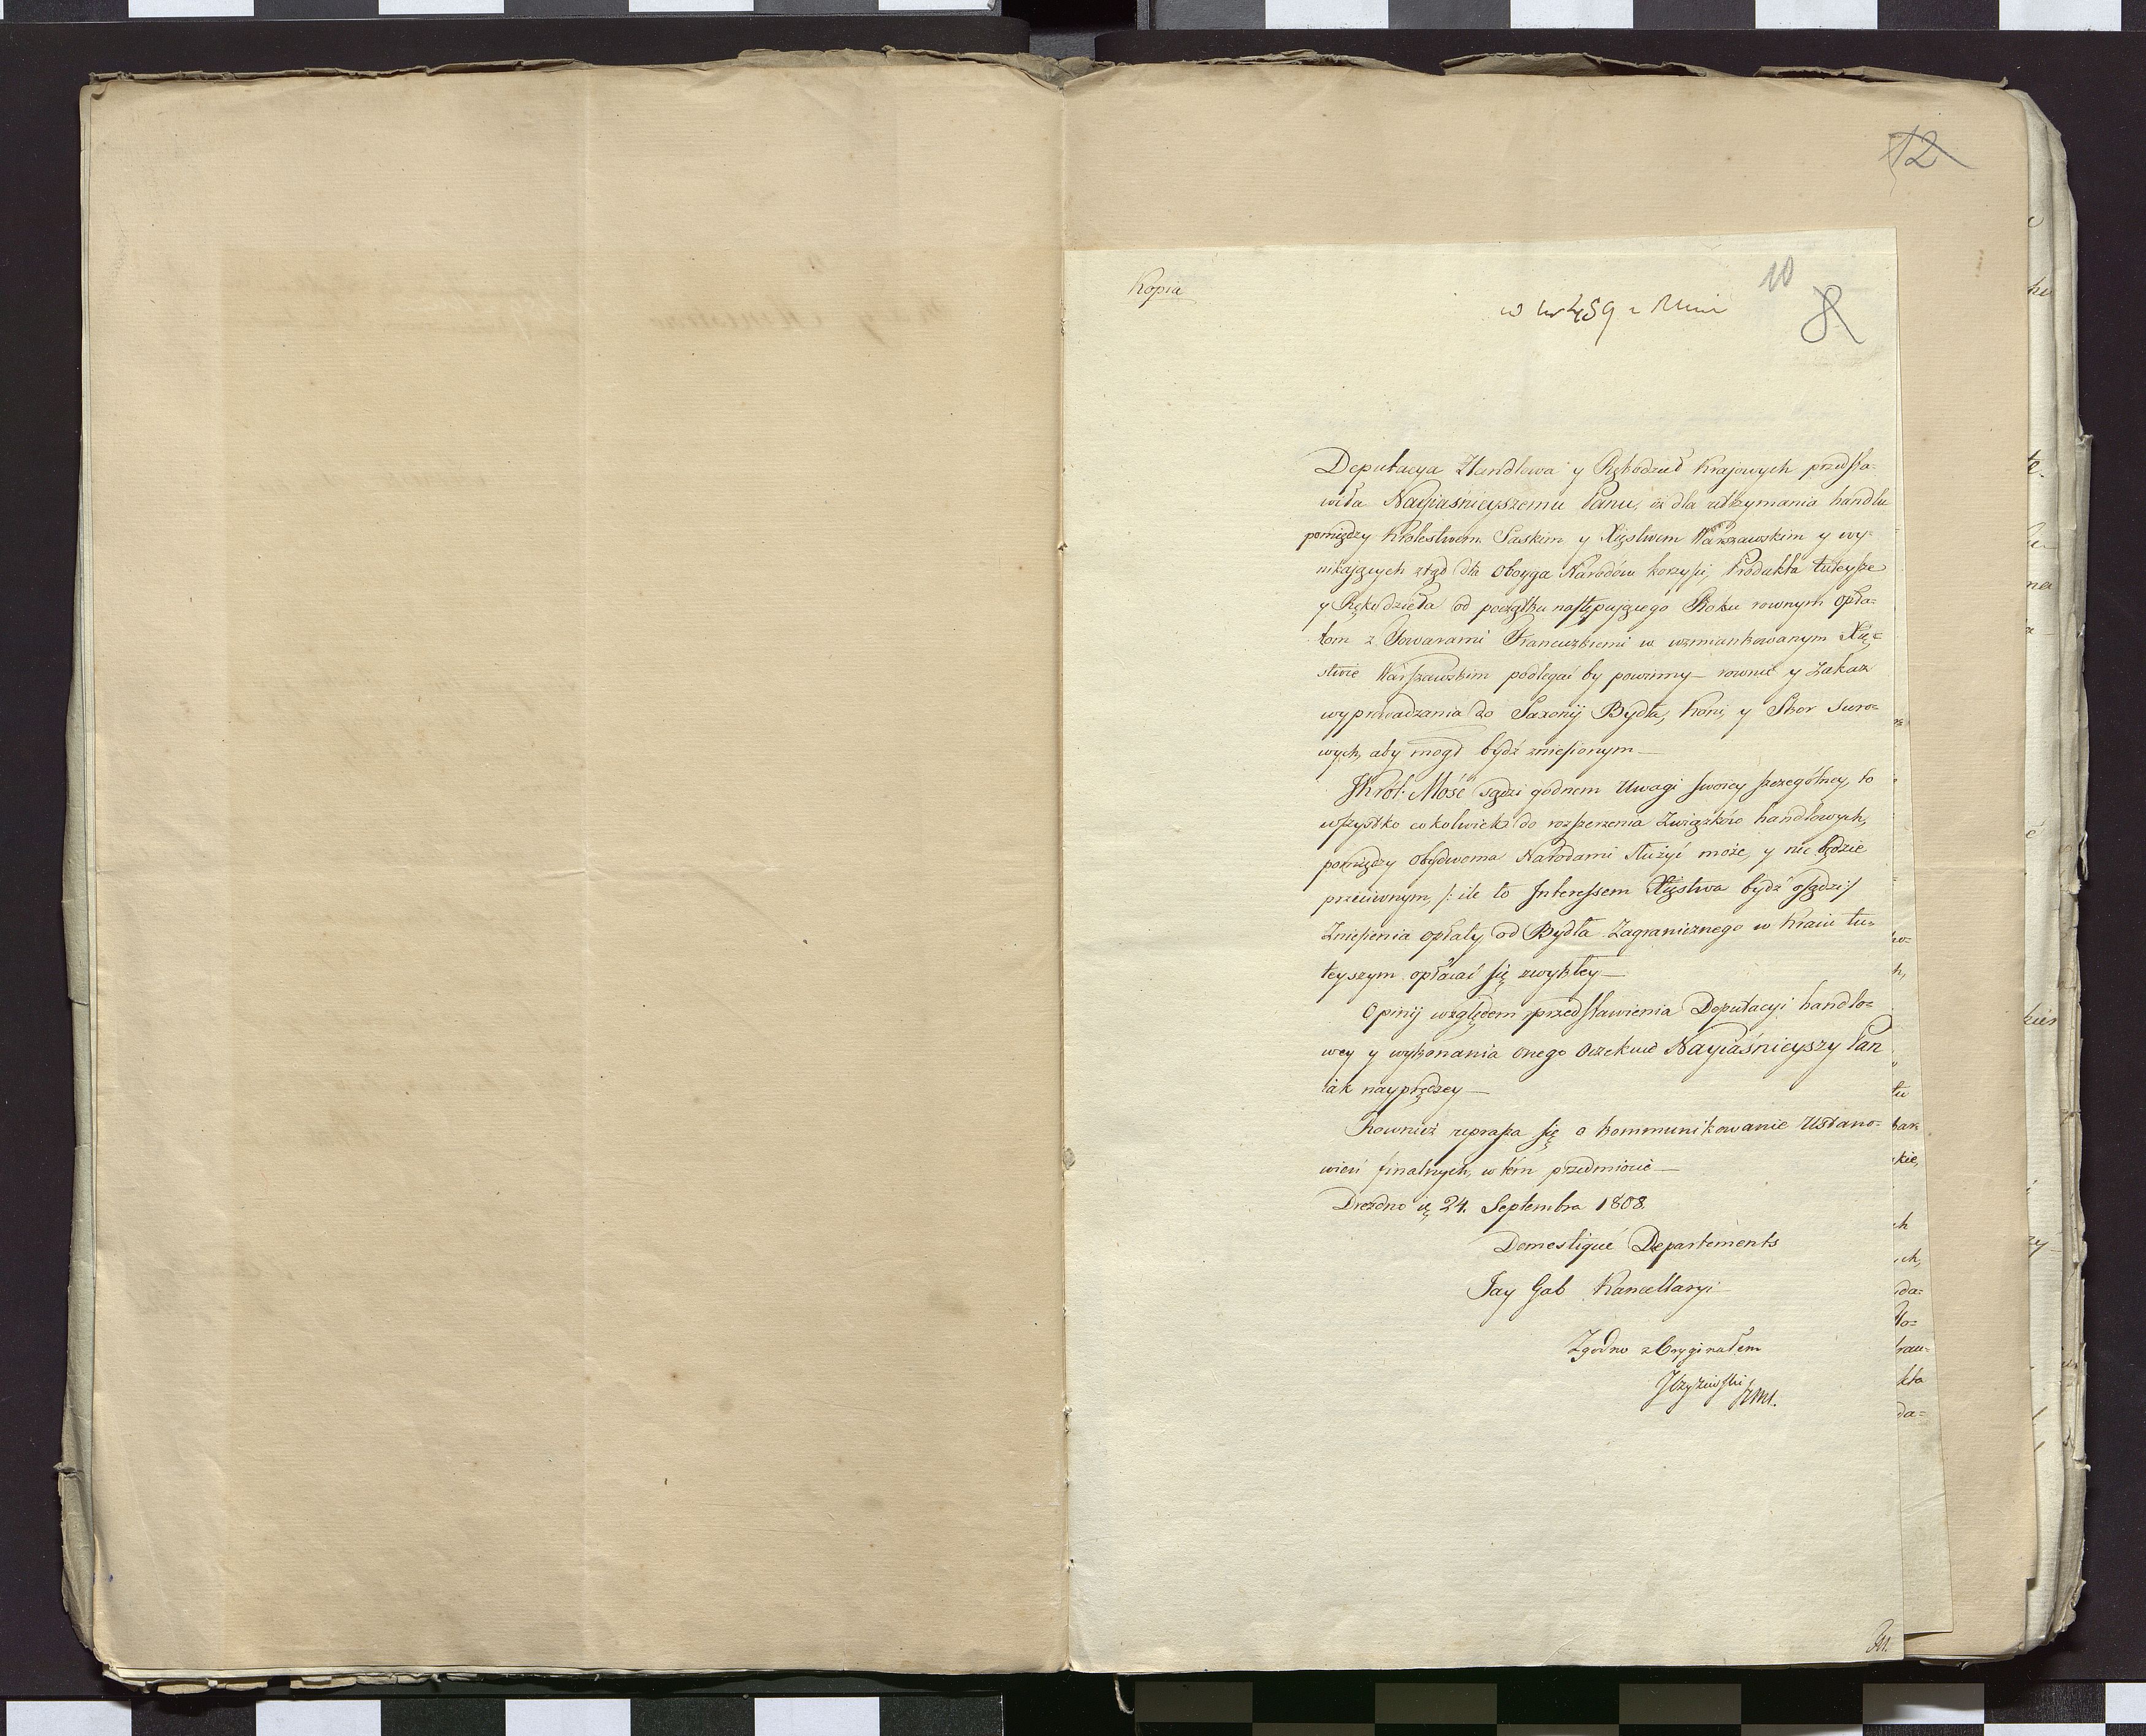 12
10
8
Kopia
w nr 459 z Min
Deputacya Handlowa y Rękodzieł Krajowych przedsta-
wiła Nayiaśnieyszemu Panu, iż dla utrzymania handlu
pomiędzy Krolestwem Saskim y Xięstwem Warszawskim y wy-
nikaiących ztąd dla oboyga Narodów korzyści, Produkta tuteysze
y Rękodzieła od początku następuiącego Roku rownym opła-
tom z Towarami Francuzkiemi w wzmiankowanym Xię-
stwie Warszawskim podlegać by powinny – rownie y Zakaz
wyprowadzania do Saxonij Bydła, koni, y Skor suro-
wych, aby mogł bydź zniesionym –
JKról: Mość sądzi godnem Uwagi swoiey szczególney, to
wszystko cokolwiek do rozszerzenia Związków handlowych,
pomiędzy obydwoma Narodami służyć może, y nie będzie
przeciwnym, /: ile to Interessem Xięstwa bydź osądzi :/
Zniesienia opłaty od Bydła Zagranicznego w kraiu tu-
teyszym opłacać się zwykłey –
Opinij względem przedstawienia Deputacyi handlo-
wey y wykonania onego oczekuie Nayiaśnieyszy Pan
iak nayprędzey –
Rownież uprasza się o kommunikowanie Ustano-
wień finalnych, w tém przedmiocie –
Drezdno d. 24. Septembra 1808.
Domestique Departements
Tay Gab Kancellaryi
Zgodno z Oryginałem